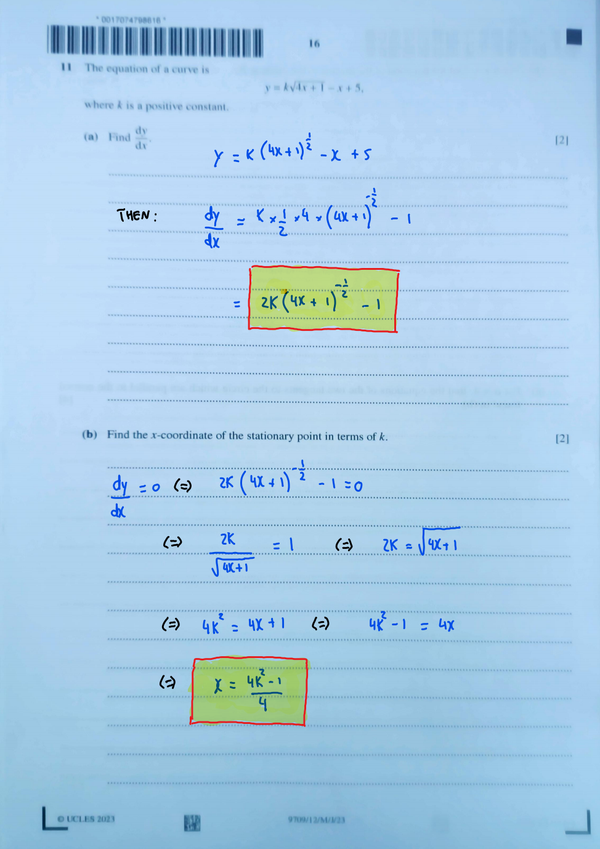 * 0017074798616 *
16
11 The equation of a curve is
y = k√(4x + 1) − x + 5,
where k is a positive constant.
(a) Find dy/dx. [2]
y = K(4x+1)^(1/2) - x + 5
THEN: dy/dx = K × 1/2 × 4 × (4x+1)^(-1/2) - 1
= 2K(4x + 1)^(-1/2) - 1
(b) Find the x-coordinate of the stationary point in terms of k. [2]
dy/dx = 0 (=) 2K(4x+1)^(-1/2) - 1 = 0
(=) 2K/√(4x+1) = 1 (=) 2K = √(4x+1)
(=) 4K² = 4x+1 (=) 4K² - 1 = 4x
(=) x = (4K² - 1)/4
© UCLES 2023
9709/12/M/J/23